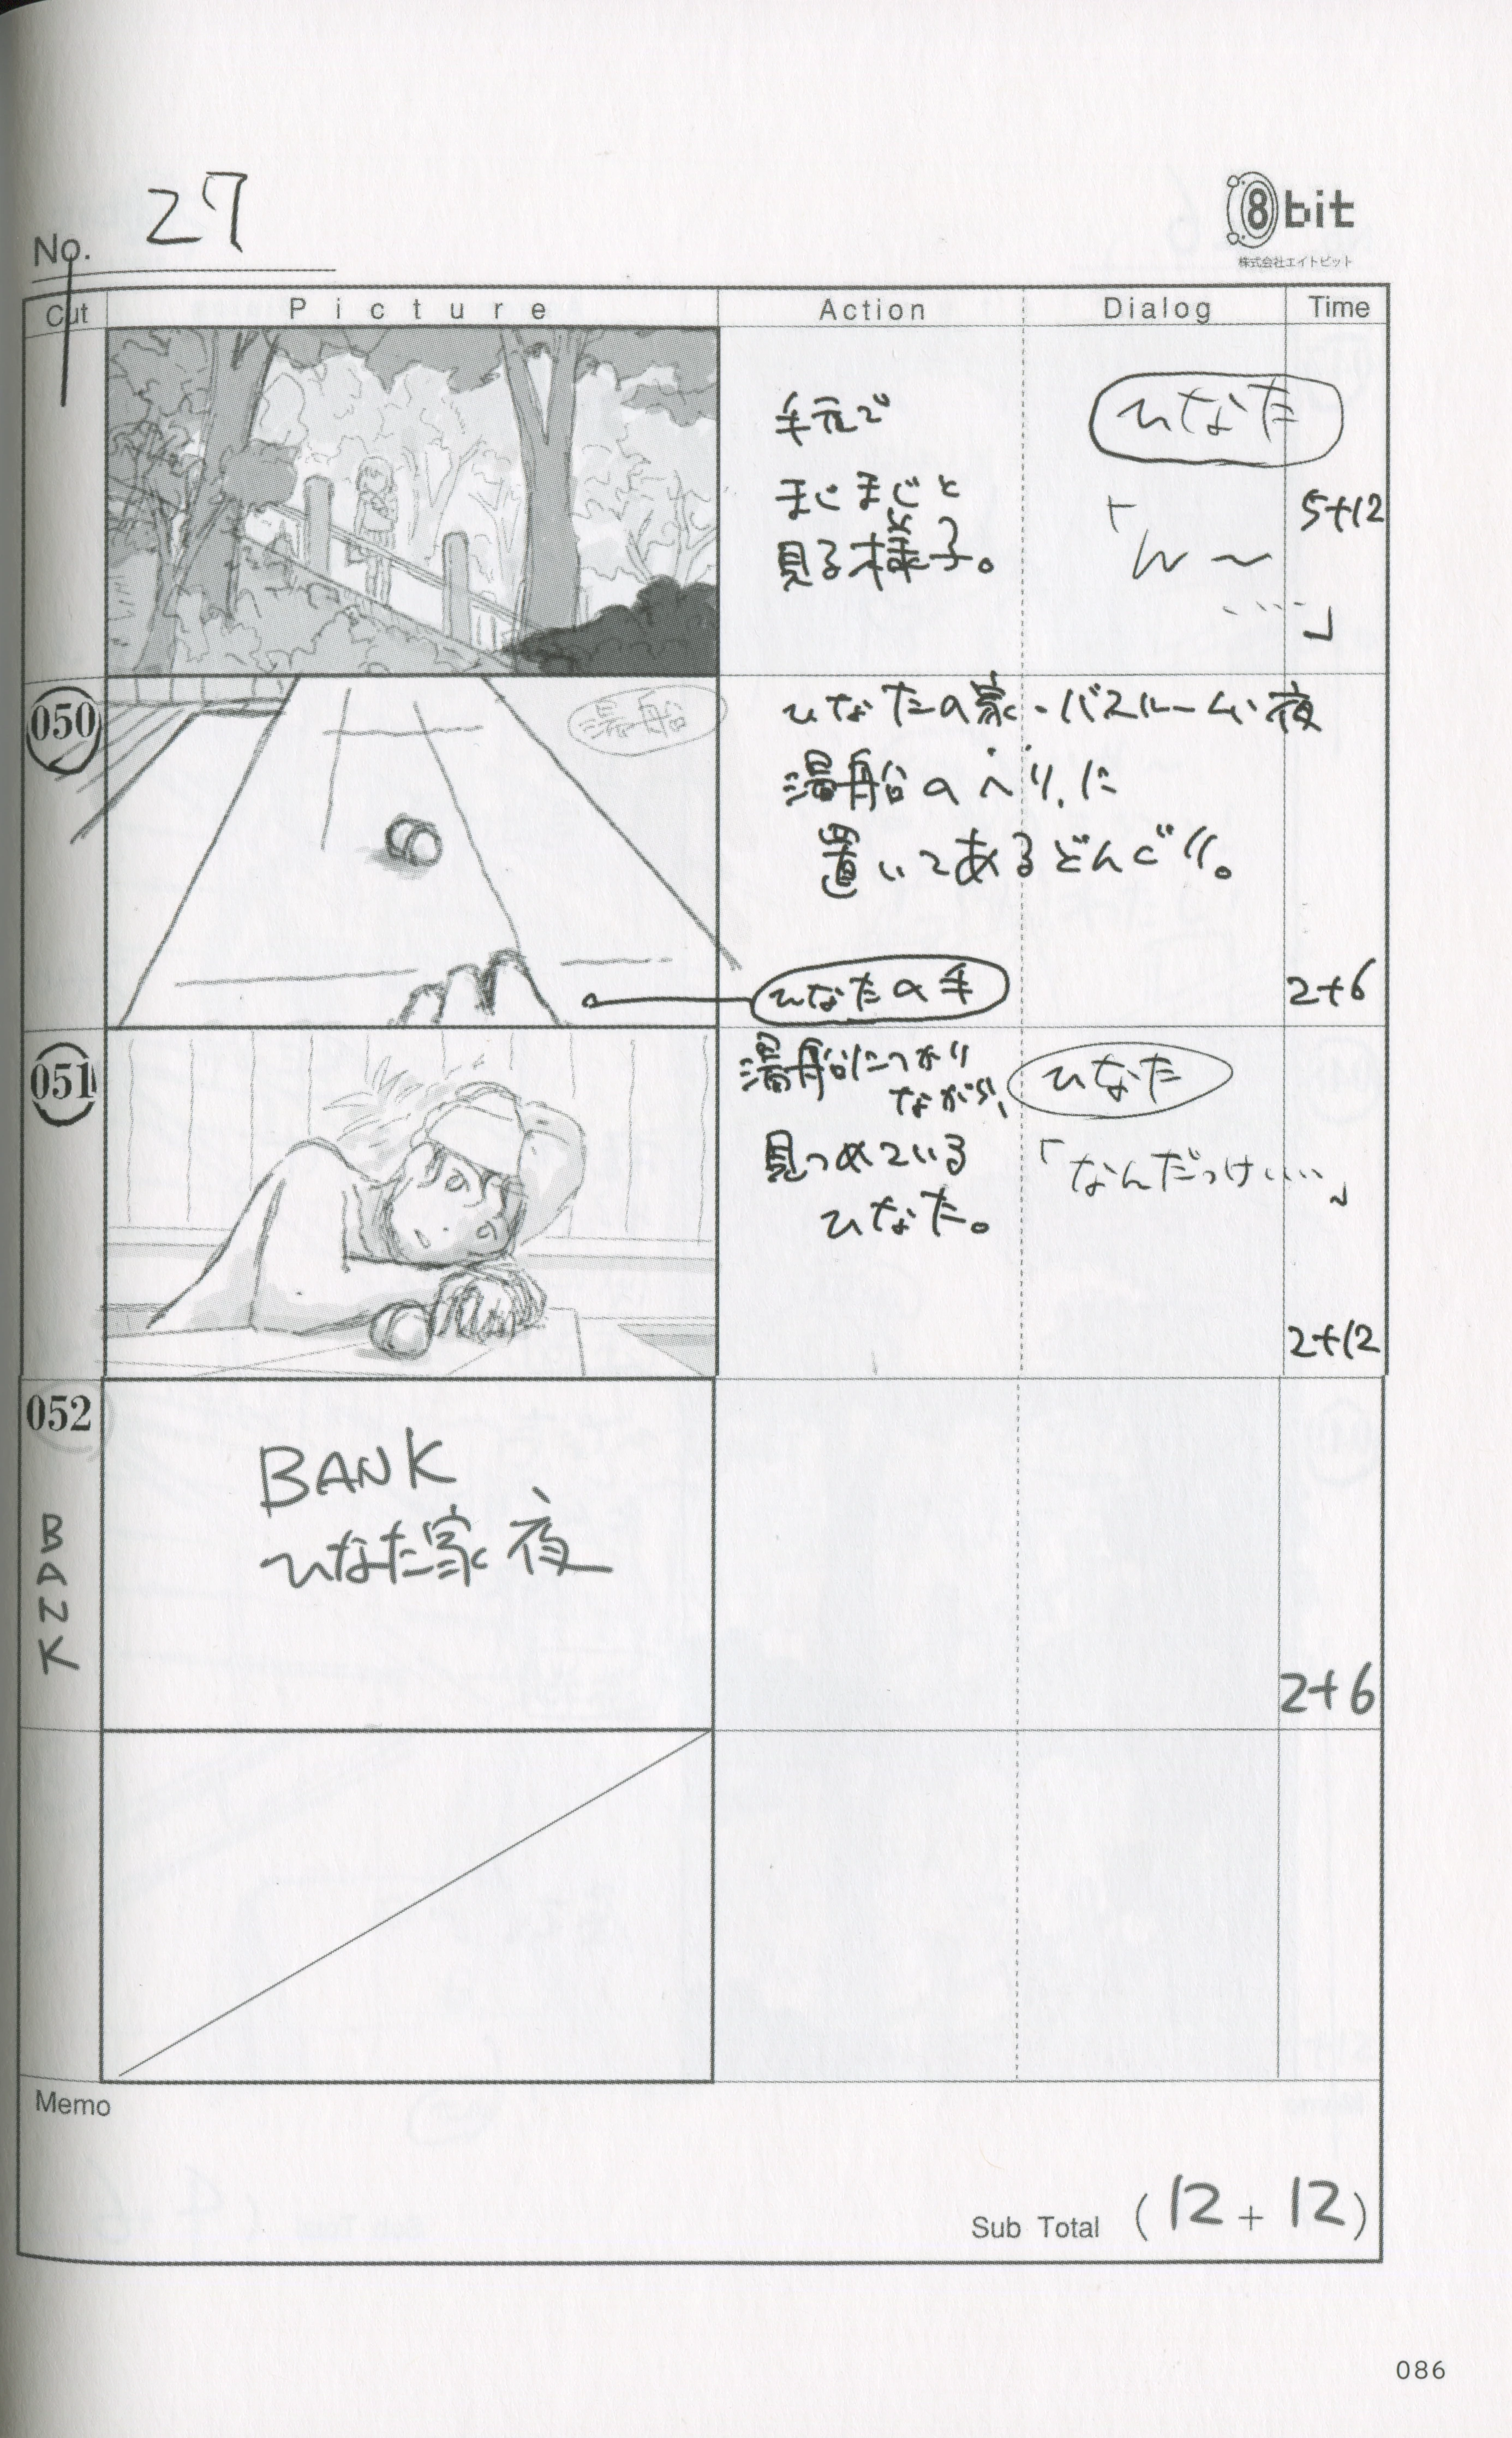 No. 27
8bit
株式会社エイトビット
Cut Picture Action Dialog Time
手元で
まじまじと
見る様子。
ひなた
「ん〜
……」
5+12
050
湯船
ひなたの家・バスルーム・夜
湯船のへりに
置いてあるどんぐり。
ひなたの手
2+6
051
湯船につかり
ながら、
見つめている
ひなた。
ひなた
「なんだっけ……」
2+12
052
BANK
BANK
ひなた家 夜
2+6
Memo
Sub Total (12+12)
086